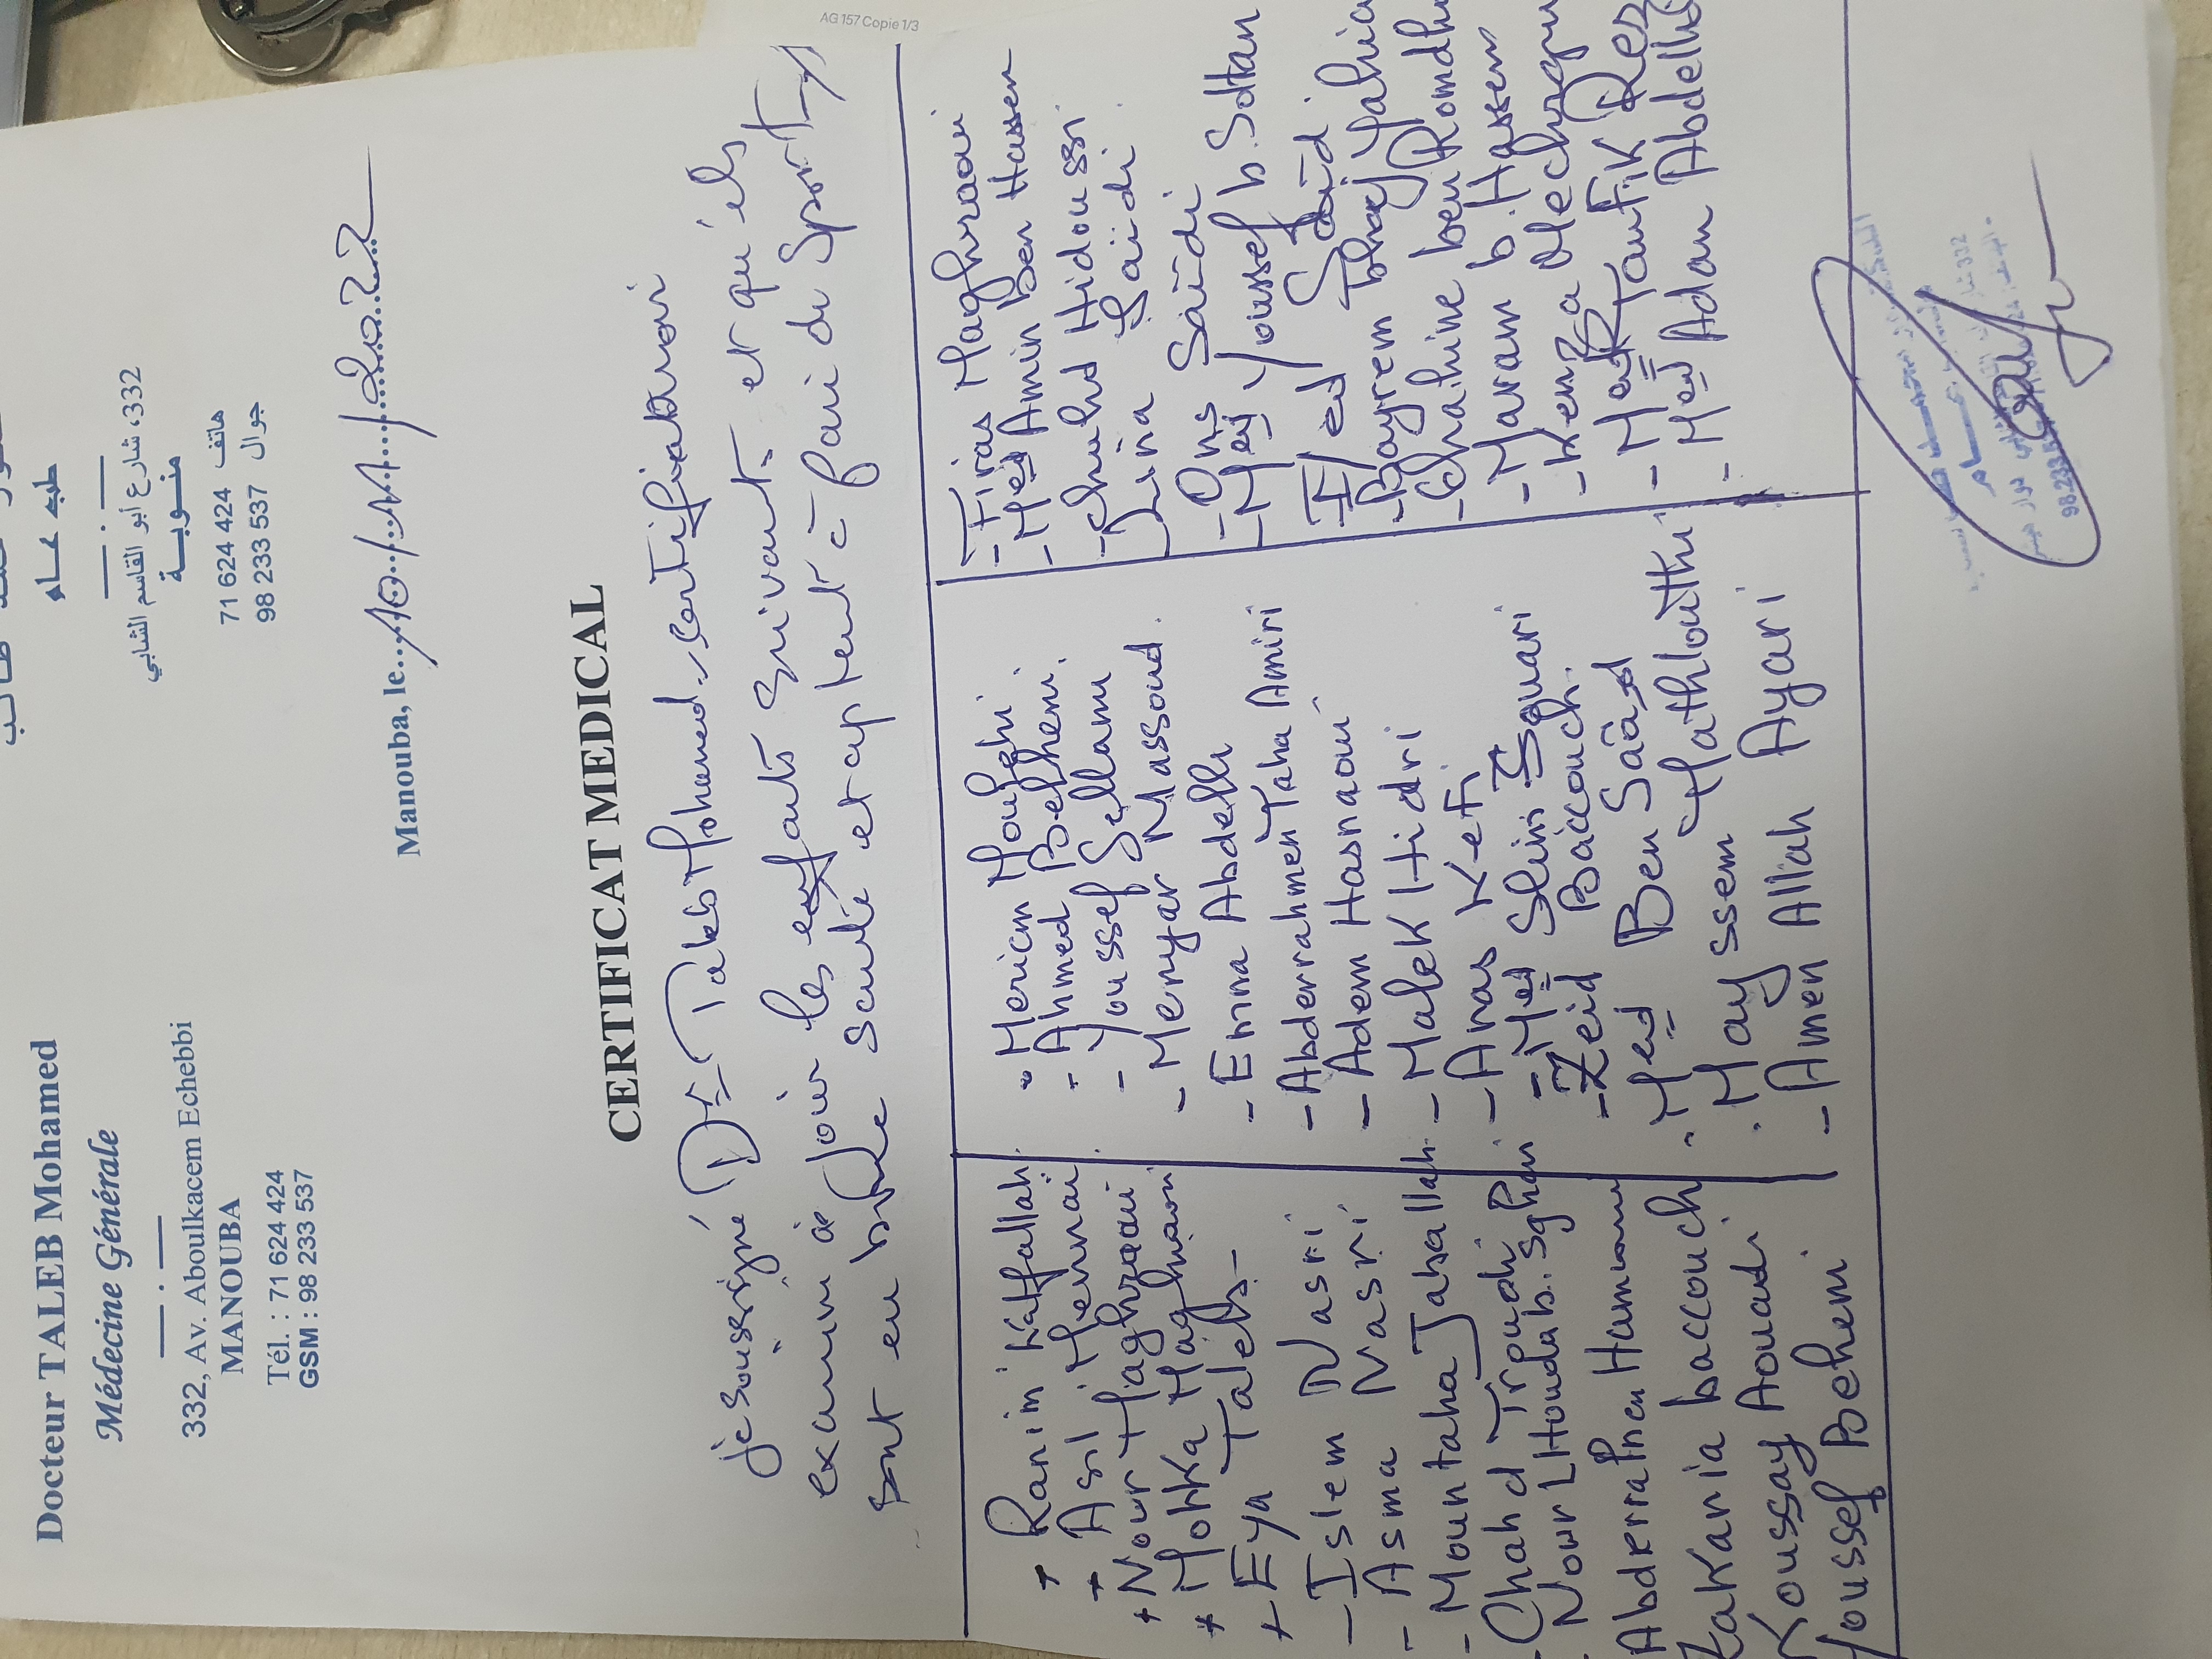 AG 157 Copie 1/3
Docteur TALEB Mohamed
Médecine Générale
332, Av. Aboulkacem Echebbi
MANOUBA
Tél. : 71 624 424
GSM : 98 233 537
طب عام
332، شارع أبو القاسم الشابي
منوبة
71 624 424 هاتف
98 233 537 جوال
Manouba, le 10/11/2022
CERTIFICAT MEDICAL
Je soussigné Dr Taleb Mohamed certifie avoir
examiné ce jour les enfants suivants et qu'ils
sont en bonne santé et apte à faire du Sport
+ Ranim Katfallah
+ Asil Mennai
+ Nour Maghraoui
+ Mohka Maghraoui
+ Eya Taleb
- Islem Nasri
- Asma Nasri
- Mountaha Jaballah
- Chahd Troudi
- Nour LHouda b. Sghair
Abderrahmen Hammami
Zakaria baccouch
Koussay Aouadi
Youssef Beheni
Meriem Moueghi
- Ahmed Belheni
- Youssef Sellami
- Meryar Massoud
- Emna Abdelli
- Abderrahmen Taha Amiri
- Adem Hasnaoui
- Malek Hidri
- Anas Kefi
- Med Slim Sguari
- Zeid Baccouch
Med Ben Saad
Mayssem Mathlouthi
- Amen Allah Ayari
- Firas Maghraoui
- Med Amin Ben Hassen
- Chuhd Hidoussi
- Lina Saidi
- Ons Saidi
- Med Youssef b. Soltan
- Iyed Said
- Bayrem Bhej Yahia
- Chahine ben Romdh
- Maram b. Hassen
- Kenza Mechregui
- Med Taufik Rez
- Med Adam Abdelli
98.233.537